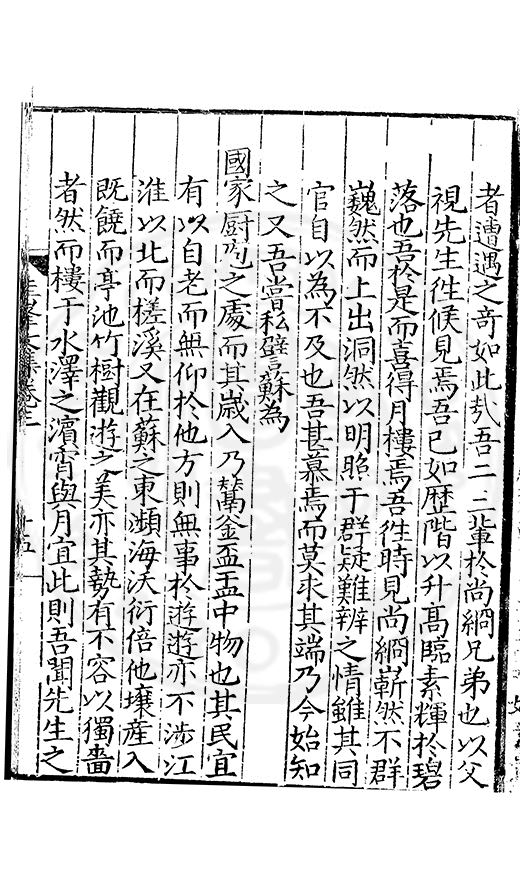 者遭遇之奇如此哉吾二三輩於尚絅兄弟也以父
視先生徃候見焉吾已如歷階以升高臨素輝於碧
落也吾於是而喜得月樓焉吾徃時見尚絅嶄然不群
巍然而上出洞然以明照于群疑難辨之情雖其同
官自以為不及也吾甚慕焉而莫求其端乃今始知
之又吾嘗私譬蘇為
國家厨咆之處而其嵗入乃鬵釡盃盂中物也其民宜
有以自老而無仰於他方則無事於遊遊亦不渉江
淮以北而槎溪又在蘇之東瀕海沃衍倍他壤産入
既饒而亭池竹樹觀遊之美亦其勢有不容以獨嗇
者然而樓于水澤之濵宵與月宜此則吾聞先生之
圭峯文集卷三
十五